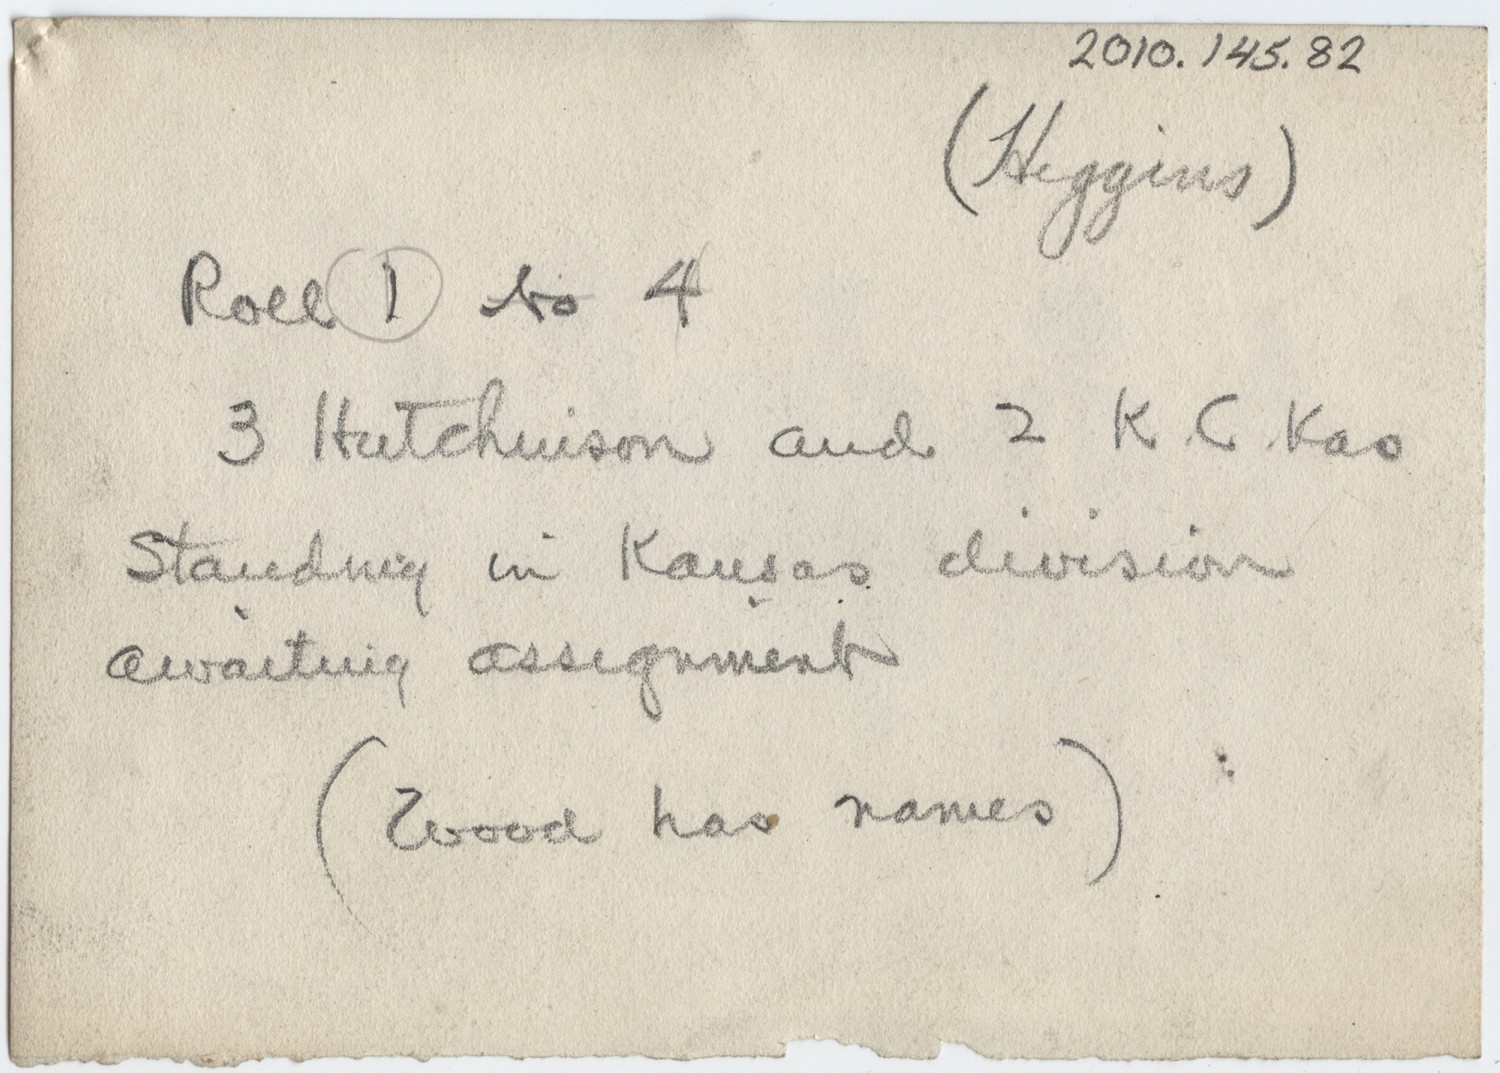 2010.145.82
(Higgins)
Roll 1 to 4
3 Hutchinson and 2 K.C. Kas
Standing in Kansas division
awaiting assignment
(Wood has names)